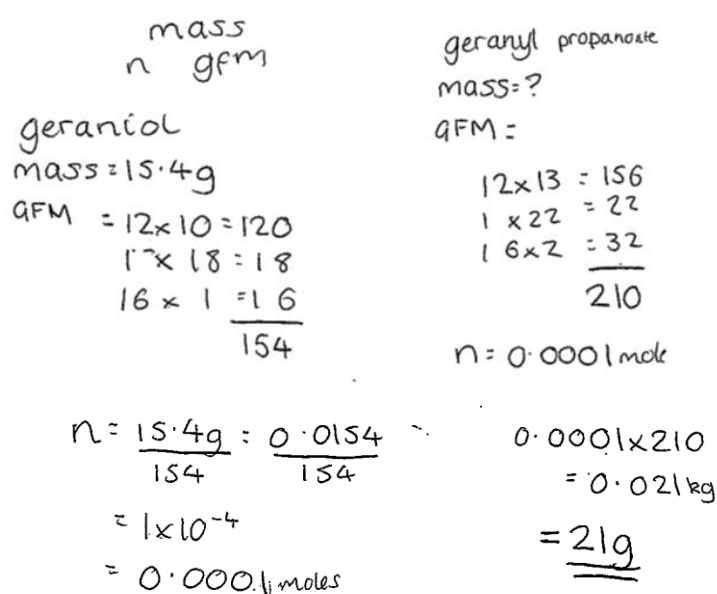 mass
n gfm
geraniol
mass = 15.4g
GFM = 12 x 10 = 120
1 x 18 = 18
16 x 1 = 16
154
n = 15.4g = 0.0154
154 154
= 1x10⁻⁴
= 0.0001 moles
geranyl propanoate
mass = ?
GFM =
12x13 = 156
1 x 22 = 22
16x2 = 32
210
n = 0.0001 mole
0.0001x210
= 0.021kg
= 21g